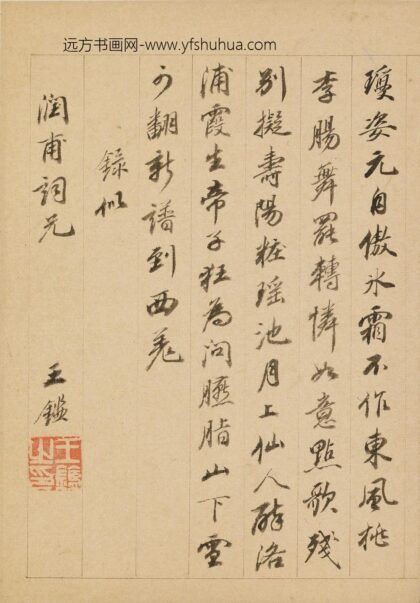 远方书画网-www.yfshuhua.com
瓊姿元自傲氷霜不作東風桃
李腸舞罷轉憐如意點歌殘
別擬壽陽粧瑶池月上仙人醉洛
浦霞生帝子狂為問臙脂山下雪
可翻新譜到西羌
録似
潤甫詞兄
王鑨
王鑨之印